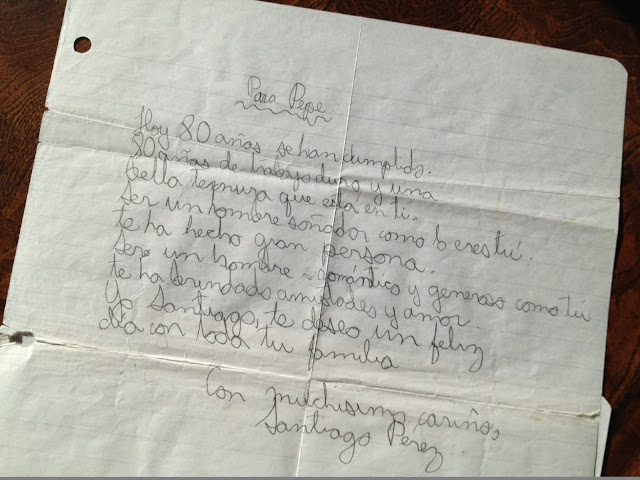 Para Pepe
Hoy 80 años se han cumplido.
80 años de trabajo duro y una
bella ternura que está en ti.
Ser un hombre soñador como lo eres tú.
te ha hecho gran persona.
Ser un hombre romántico y generoso como tú
te ha brindado amistades y amor.
Yo Santiago, te deseo un feliz
día con toda tu familia
Con muchisimo cariño,
Santiago Pérez